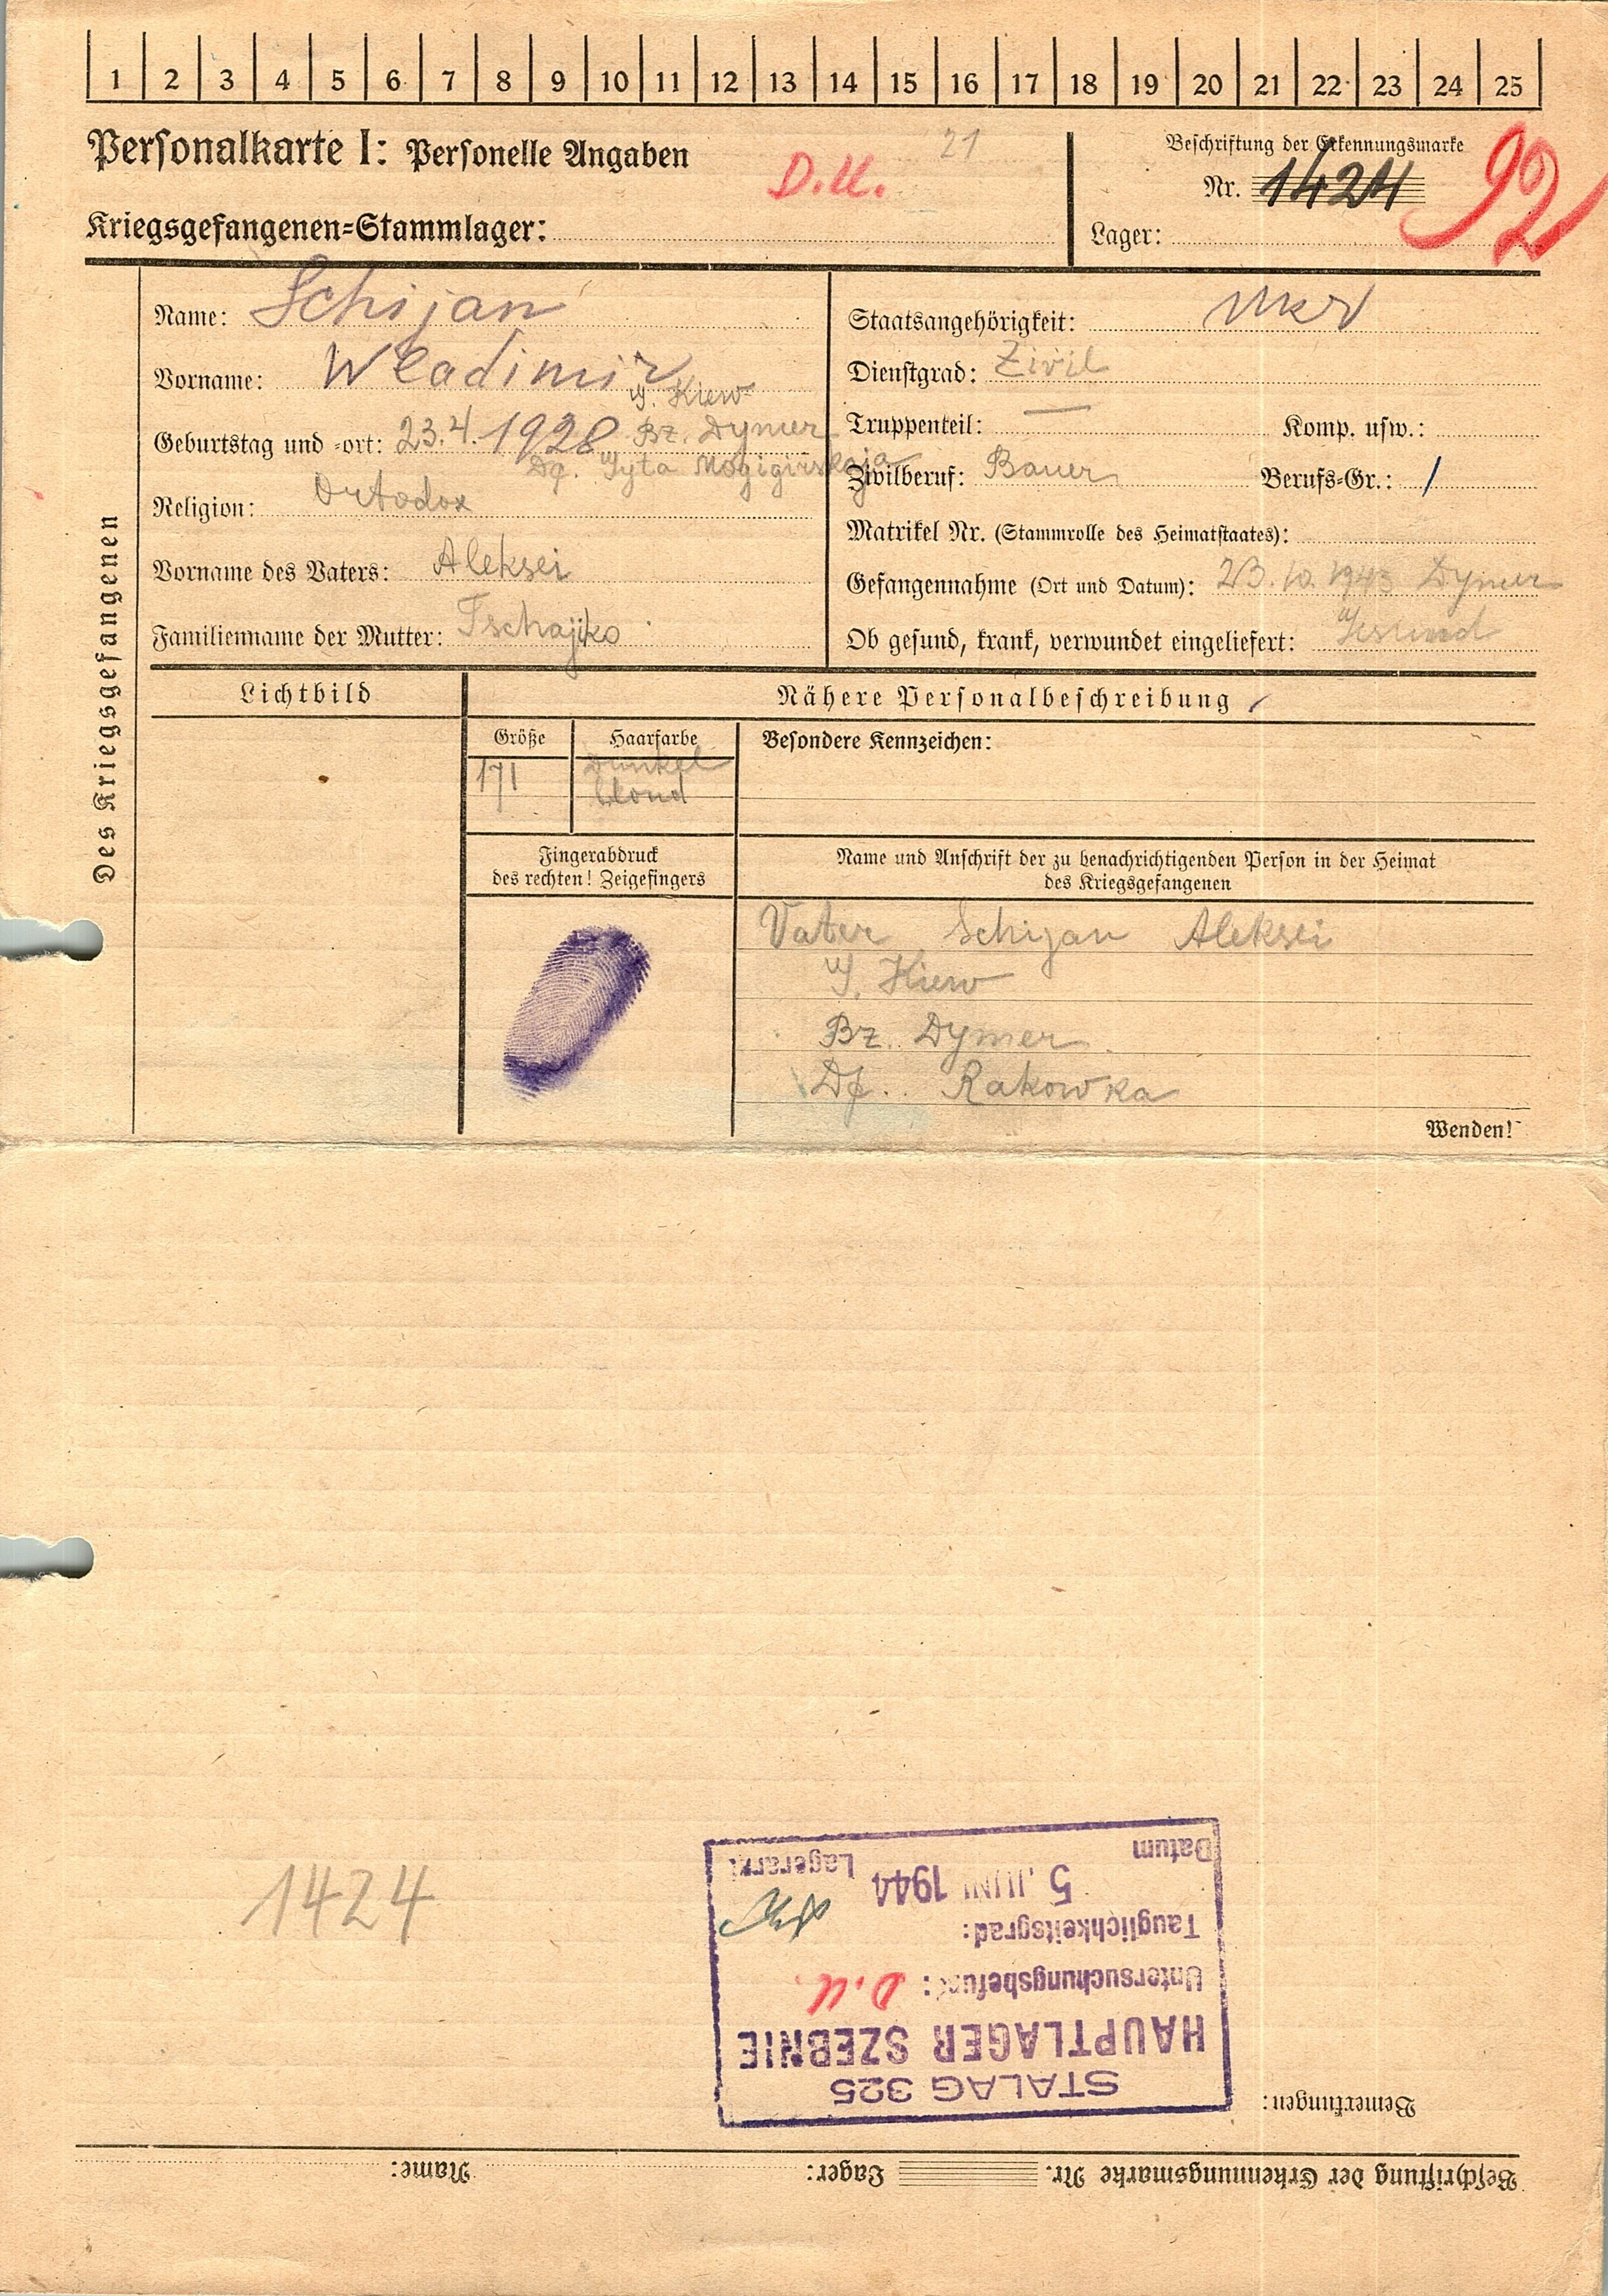 1 2 3 4 5 6 7 8 9 10 11 12 13 14 15 16 17 18 19 20 21 22 23 24 25
Personalkarte I: Personelle Angaben
D.U.
21
Kriegsgefangenen-Stammlager:
Beschriftung der Erkennungsmarke
Nr. 1424
92
Lager:
Des Kriegsgefangenen
Name: Schijan
Vorname: Wladimir
G. Kiew
Geburtstag und -ort: 23.4.1928 Bz. Dymer
Religion: Ortodox
Vorname des Vaters: Aleksei
Familienname der Mutter: Tschajko
Staatsangehörigkeit: Ukr
Dienstgrad: Zivil
Truppenteil: — Komp. usw.:
Zivilberuf: Bauer Berufs-Gr.: /
Matrikel Nr. (Stammrolle des Heimatstaates):
Gefangennahme (Ort und Datum): 23.10.1943 Dymer
Ob gesund, krank, verwundet eingeliefert: Gesund
Lichtbild
Nähere Personalbeschreibung
Größe
Haarfarbe
Besondere Kennzeichen:
171
Dunkel
blond
Fingerabdruck
des rechten! Zeigefingers
Name und Anschrift der zu benachrichtigenden Person in der Heimat
des Kriegsgefangenen
Vater Schijan Aleksei
G. Kiew
Bz. Dymer
Df. Rakowka
Wenden!
1424
Beschriftung der Erkennungsmarke Nr. Lager: Name:
Bemerkungen:
STALAG 325
HAUPTLAGER SZEBNIE
Untersuchungsbefund: D.U.
Tauglichkeitsgrad:
5. JUNI 1944
Datum Lagerarzt